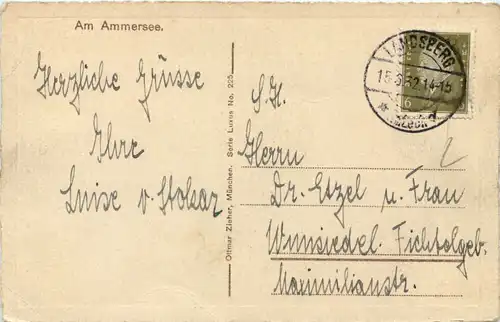 Am Ammersee.
Herzliche Grüsse
Ihre
Luise v. Stokar
Ottmar Zieher, München. Serie Luxus No. 225
LANDSBERG
15.8.32.14-15
(LECH)
6
S. H.
Herrn
Dr. Etzel u. Frau
Wunsiedel. Fichtelgeb.
Maximilianstr.
2